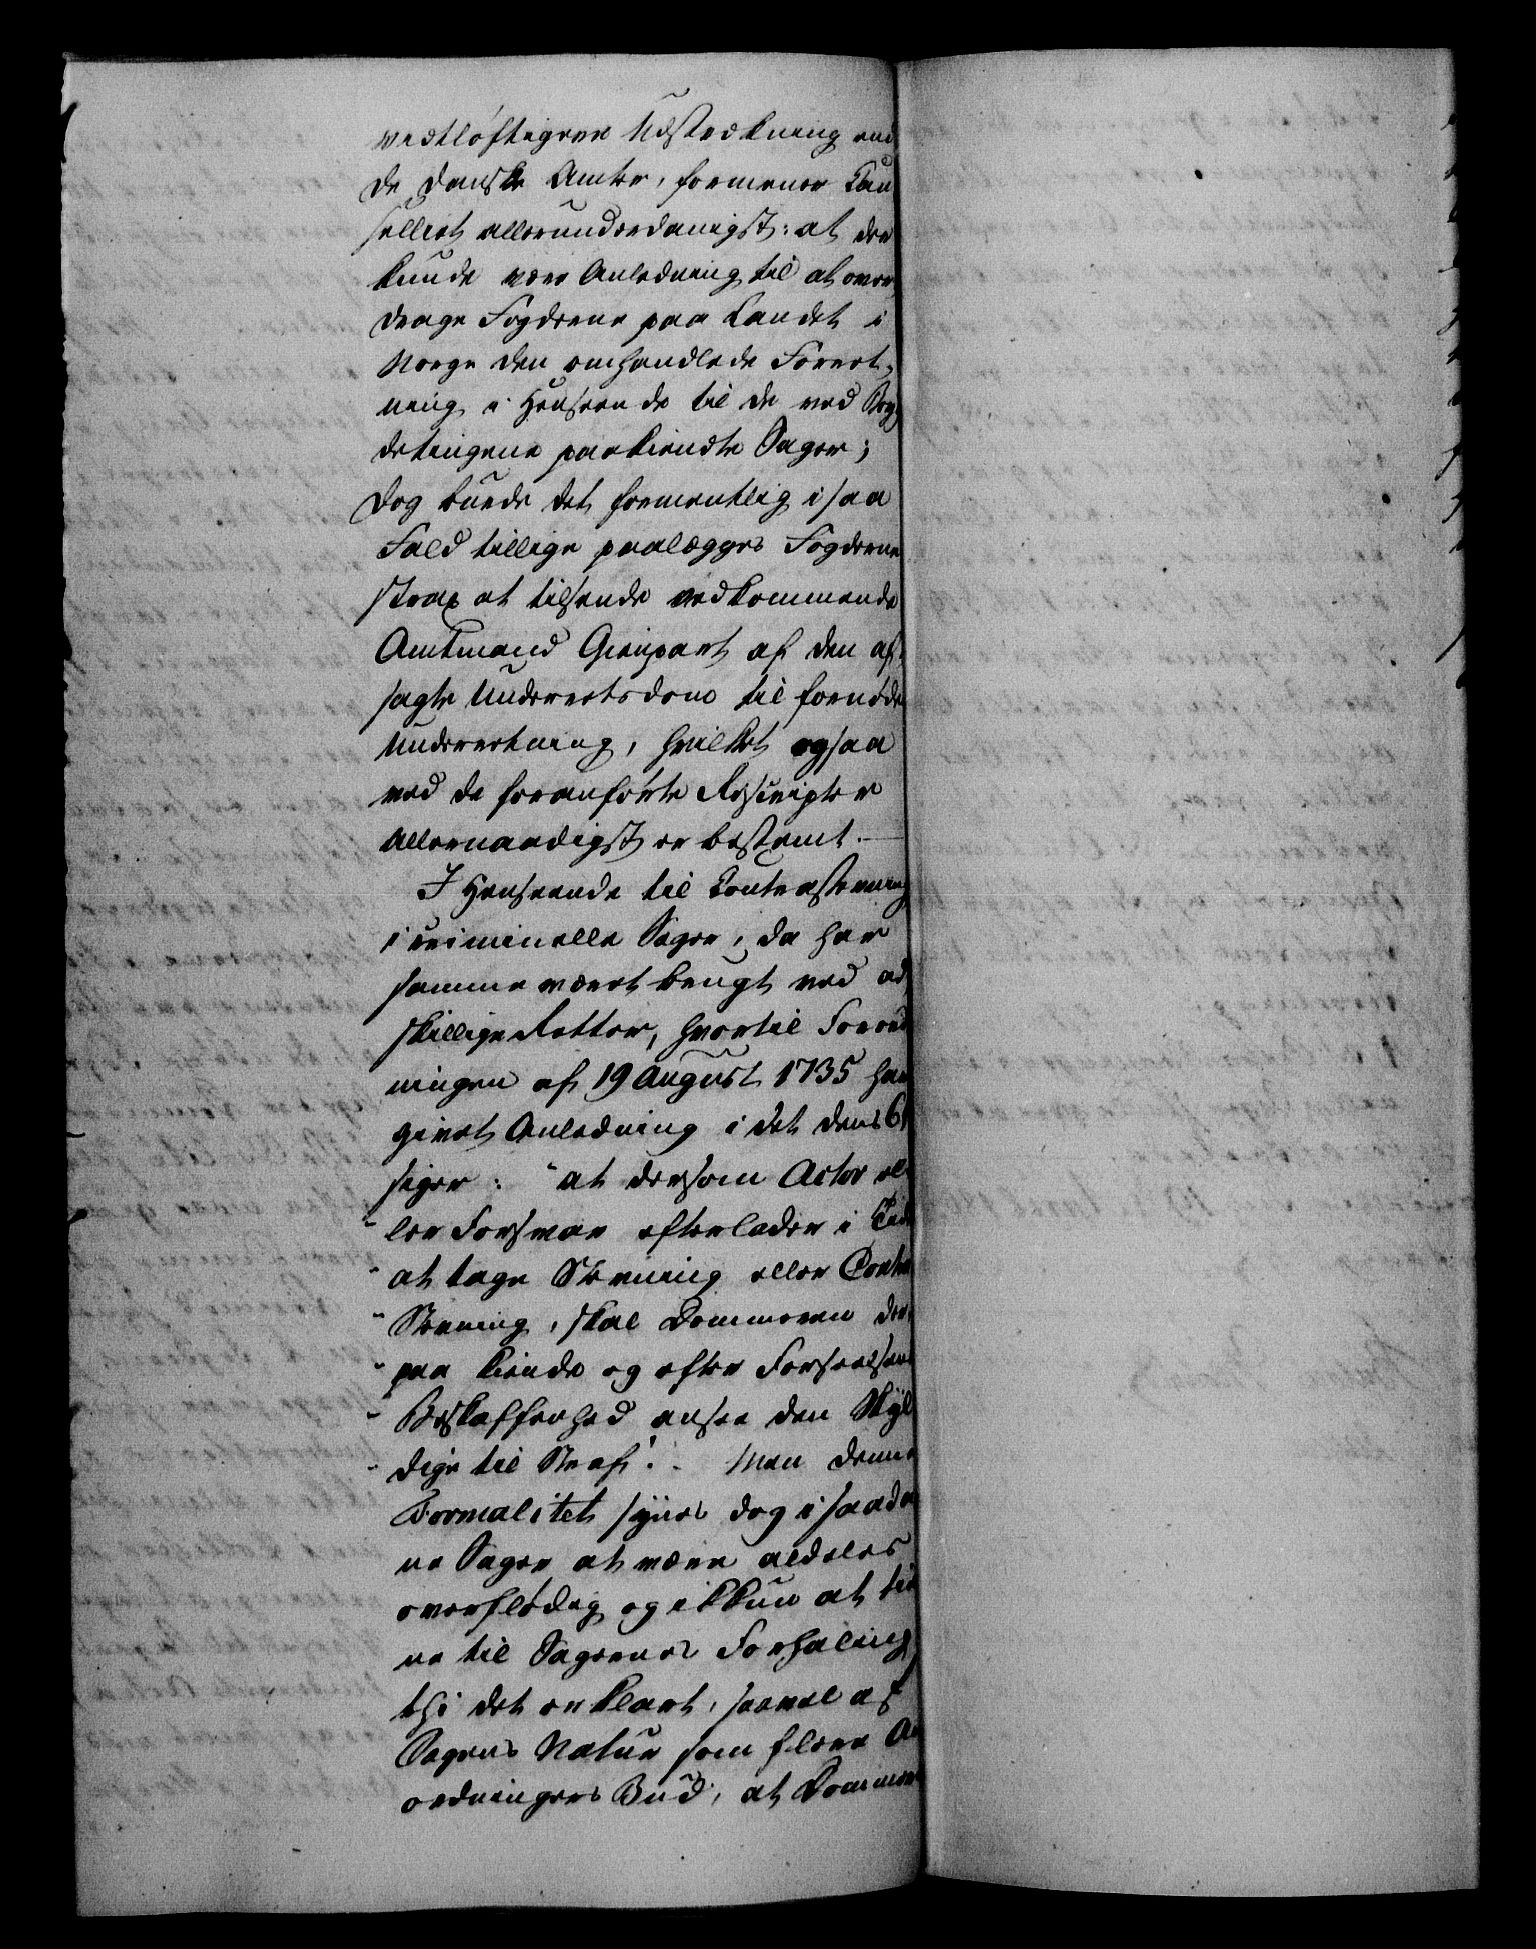 vidtløftigere Udstrækning end
de danske Amter, formener Can
celliet allerunderdanigst: at der
kunde være Anledning til at over
drage Fogderne paa Landet i
Norge den omhandlede Forret-
ning i Henseende til de ved Byg
detingene paakiendte Sager;
dog burde det formentlig i saa
Fald tillige paalægges Fogderne
strax at tilsende vedkommende
Amtmand Gienpart af den af-
sagte Underretsdom til fornøden
Underretning, hvilket ogsaa
ved de foranførte Rescripter
allernaadigst er bestemt.—
I Henseende til Contrastevning
i criminelle Sager, da har
samme været brugt ved ad
skillige Retter, hvortil Forord
ningen af 19 August 1735 har
givet Anledning i det dens 6
siger: "at dersom Actor el
"ler Forsvar efterlader i Tide
"at tage Stevning eller Contra
"Stevning, skal Dommeren der
"paa kiende og efter Forseelsens
"Beskaffenhed ansee den Skyl
"dige til Straf". Men denne
Formalitet synes dog i saada
ne Sager at være aldeles
overflødig og ikkun at tie
ne til Sagernes Forhaling
thi det er klart, saavel af
Sagens Natur som flere An
ordningers Bud, at Dommer